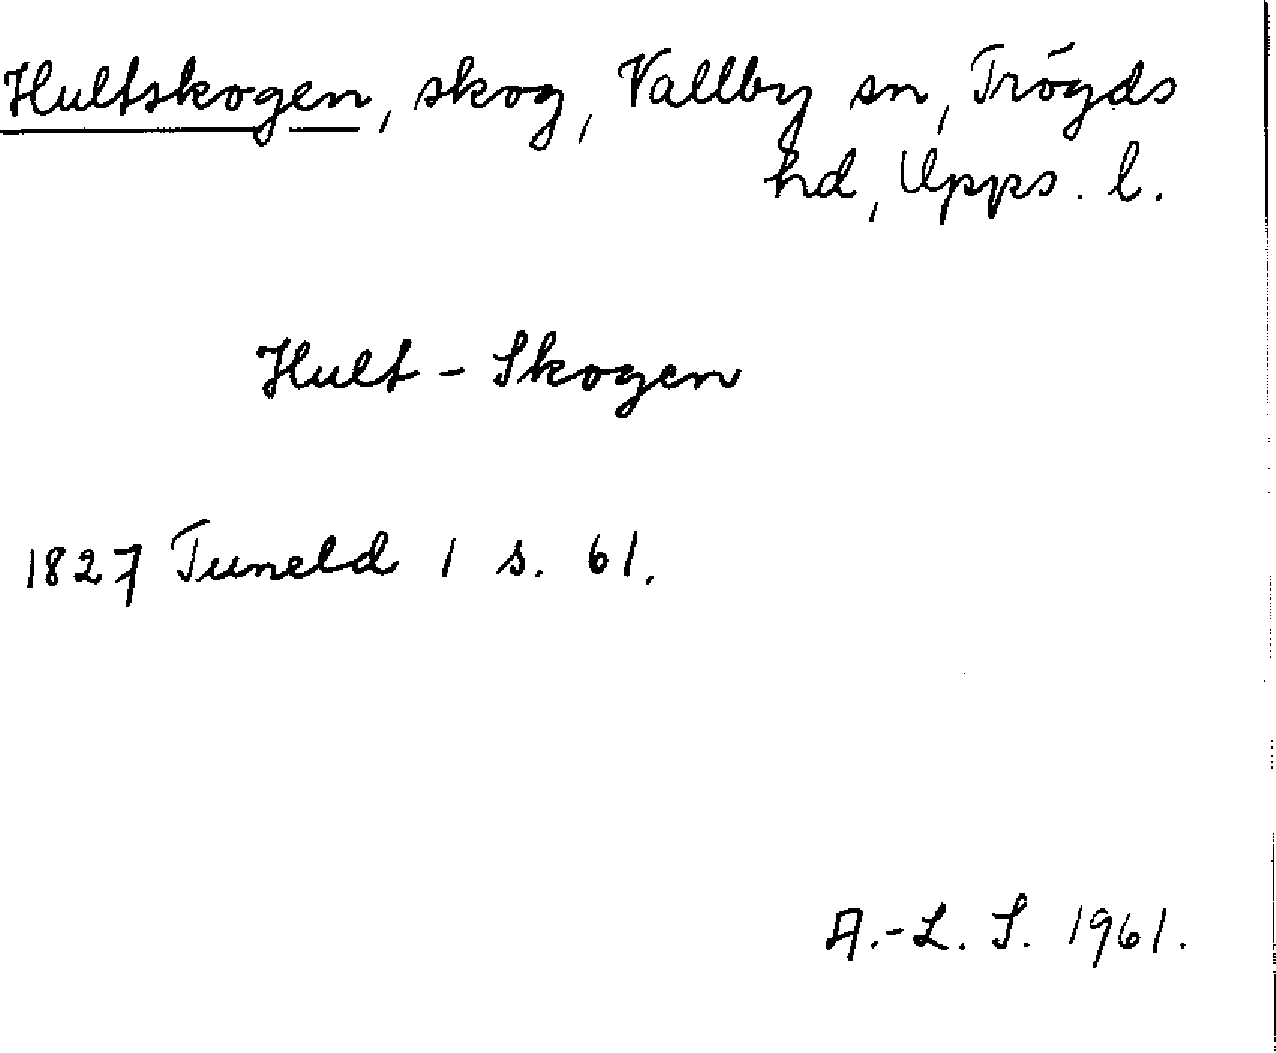 Hultskogen, skog, Vallby sn, Trögds
hd, Upps. l.
Hult - Skogen
1827 Tuneld 1 s. 61.
A.-L. S. 1961.